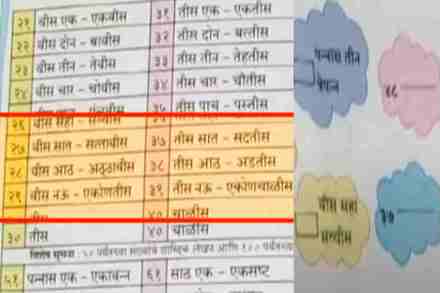 २१ वीस एक - एकवीस ३१ तीस एक - एकतीस
२२ वीस दोन - बावीस ३२ तीस दोन - बत्तीस
२३ वीस तीन - तेवीस ३३ तीस तीन - तेहतीस
२४ वीस चार - चोवीस ३४ तीस चार - चौतीस
३५ तीस पाच - पस्तीस
२६ वीस सहा - सव्वीस
२७ वीस सात - सत्तावीस ३७ तीस सात - सदतीस
२८ वीस आठ - अठ्ठावीस ३८ तीस आठ - अडतीस
२९ वीस नऊ - एकोणतीस ३९ तीस नऊ - एकोणचाळीस
तीस ४० चाळीस
३० तीस ४० चाळीस
विशेष सूचना : ५० पर्यंतच्या संख्यांचे शाब्दिक लेखन आणि १०० पर्यंतच्या
५१ पन्नास एक - एकावन्न ६१ साठ एक - एकसष्ट
पन्नास तीन
त्रेपन्न
४८
वीस सहा
सव्वीस
३७